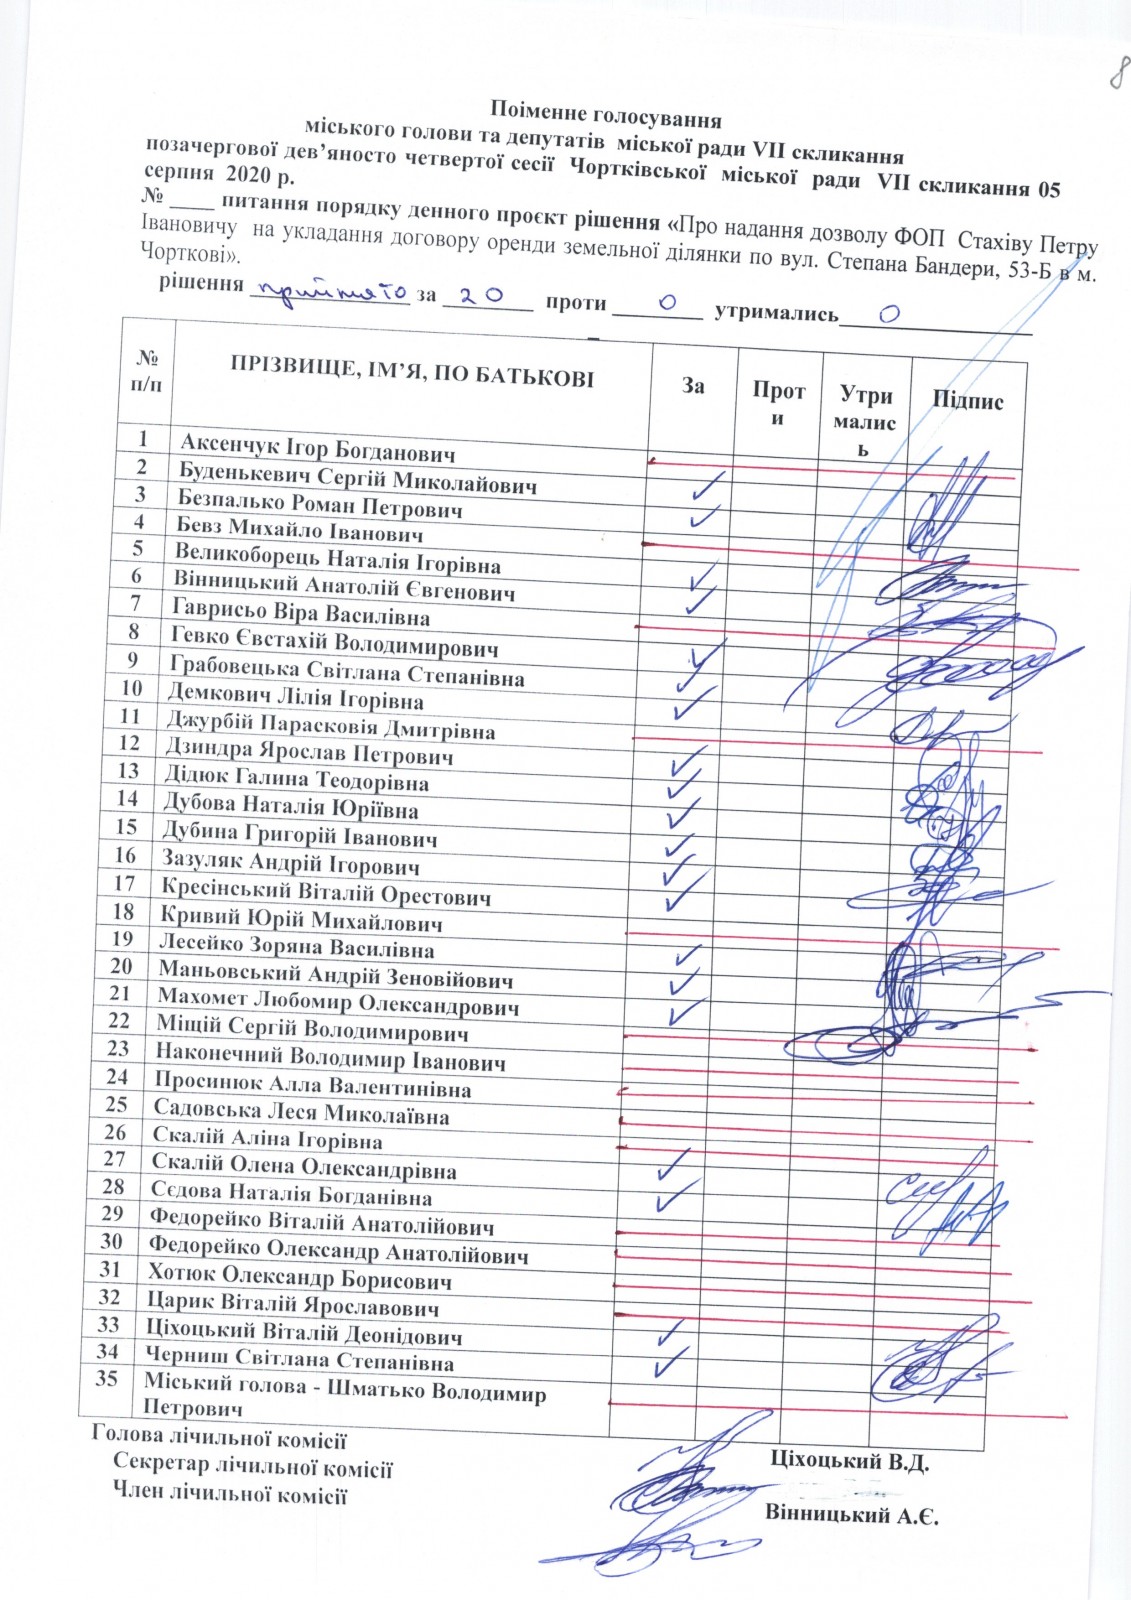 8
Поіменне голосування
міського голови та депутатів міської ради VII скликання
позачергової дев’яносто четвертої сесії Чортківської міської ради VII скликання 05
серпня 2020 р.
№ ____ питання порядку денного проєкт рішення «Про надання дозволу ФОП Стахіву Петру
Івановичу на укладання договору оренди земельної ділянки по вул. Степана Бандери, 53-Б в м.
Чорткові».
рішення прийнято за 20 проти 0 утримались 0
№ п/п ПРІЗВИЩЕ, ІМ’Я, ПО БАТЬКОВІ За Проти Утрималисьь Підпис
1 Аксенчук Ігор Богданович
2 Буденькевич Сергій Миколайович ✓
3 Безпалько Роман Петрович ✓
4 Бевз Михайло Іванович
5 Великоборець Наталія Ігорівна ✓
6 Вінницький Анатолій Євгенович ✓
7 Гаврисьо Віра Василівна
8 Гевко Євстахій Володимирович ✓
9 Грабовецька Світлана Степанівна ✓
10 Демкович Лілія Ігорівна ✓
11 Джурбій Парасковія Дмитрівна
12 Дзиндра Ярослав Петрович ✓
13 Дідюк Галина Теодорівна ✓
14 Дубова Наталія Юріївна ✓
15 Дубина Григорій Іванович ✓
16 Зазуляк Андрій Ігорович ✓
17 Кресінський Віталій Орестович ✓
18 Кривий Юрій Михайлович
19 Лесейко Зоряна Василівна ✓
20 Маньовський Андрій Зеновійович ✓
21 Махомет Любомир Олександрович ✓
22 Міщій Сергій Володимирович
23 Наконечний Володимир Іванович
24 Просинюк Алла Валентинівна
25 Садовська Леся Миколаївна
26 Скалій Аліна Ігорівна
27 Скалій Олена Олександрівна ✓
28 Сєдова Наталія Богданівна ✓
29 Федорейко Віталій Анатолійович
30 Федорейко Олександр Анатолійович
31 Хотюк Олександр Борисович
32 Царик Віталій Ярославович
33 Ціхоцький Віталій Деонідович ✓
34 Черниш Світлана Степанівна ✓
35 Міський голова - Шматько Володимир
Петрович
Голова лічильної комісії Ціхоцький В.Д.
Секретар лічильної комісії
Член лічильної комісії Вінницький А.Є.